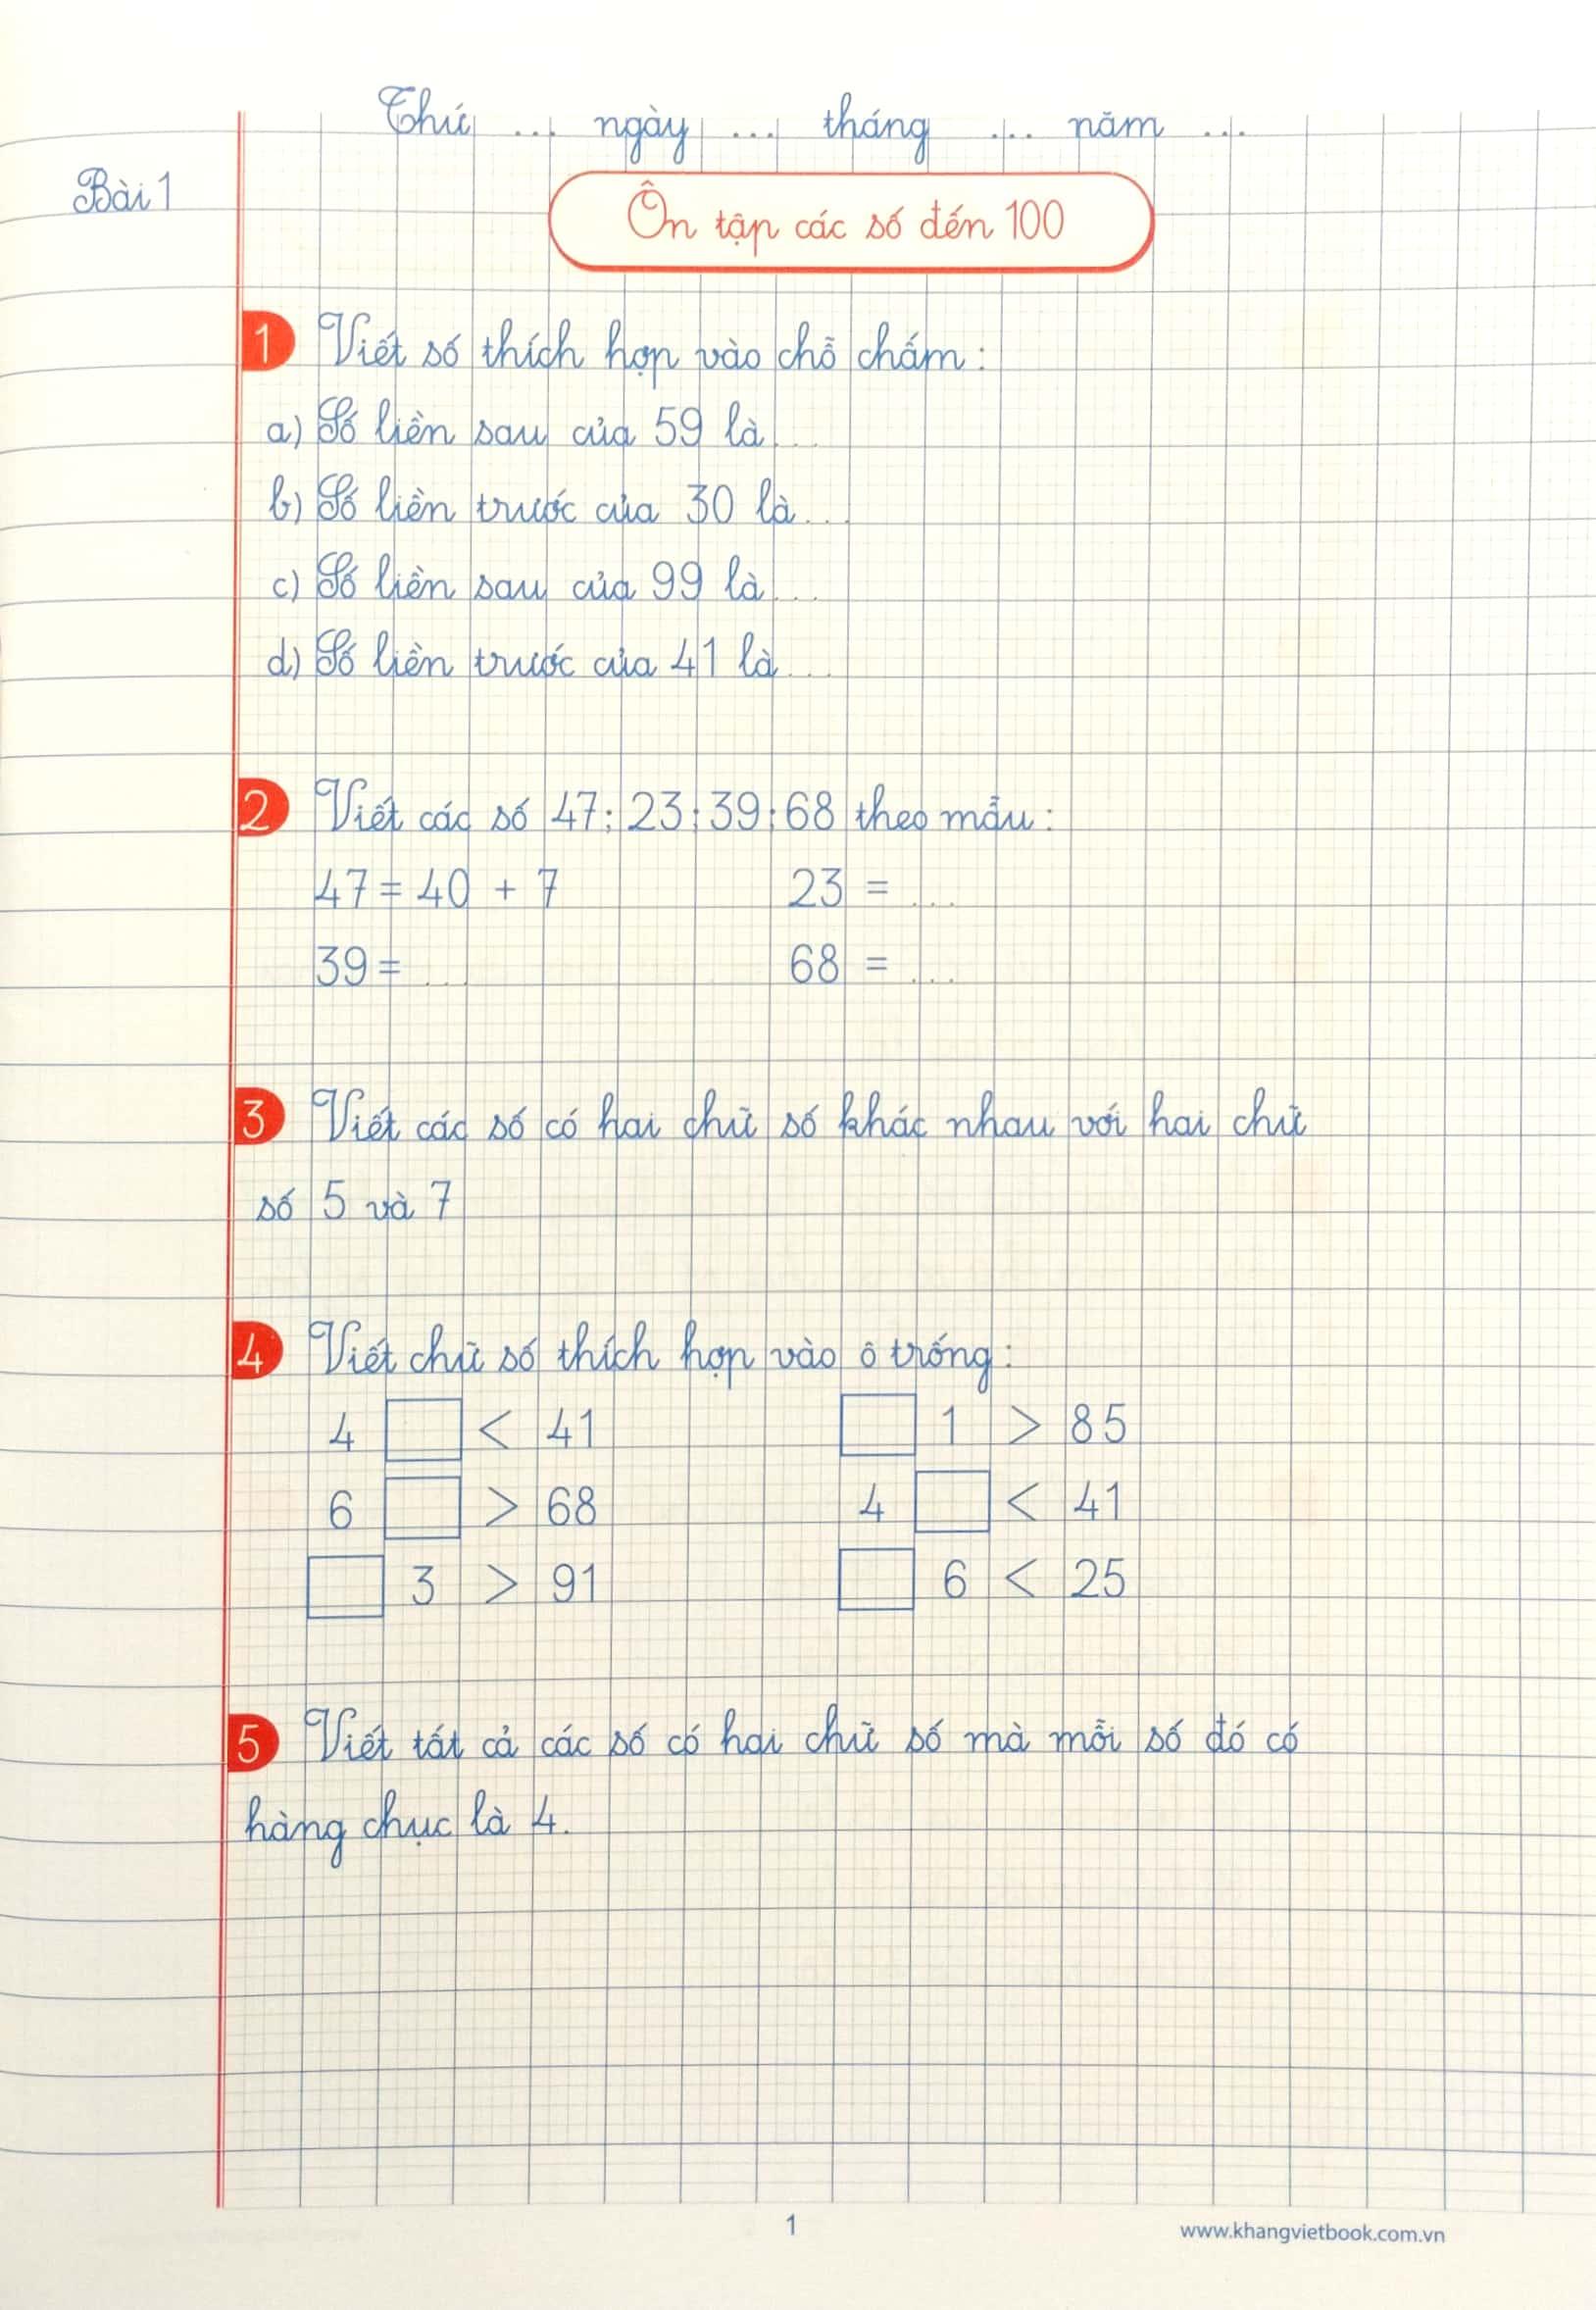 Thứ ... ngày ... tháng ... năm ...
Bài 1
Ôn tập các số đến 100
1 Viết số thích hợp vào chỗ chấm:
a) Số liền sau của 59 là ...
b) Số liền trước của 30 là ...
c) Số liền sau của 99 là ...
d) Số liền trước của 41 là ...
2 Viết các số 47; 23; 39; 68 theo mẫu:
47 = 40 + 7 23 = ...
39 = ... 68 = ...
3 Viết các số có hai chữ số khác nhau với hai chữ
số 5 và 7
4 Viết chữ số thích hợp vào ô trống:
4 □ < 41 □ 1 > 85
6 □ > 68 4 □ < 41
□ 3 > 91 □ 6 < 25
5 Viết tất cả các số có hai chữ số mà mỗi số đó có
hàng chục là 4.
1 www.khangvietbook.com.vn